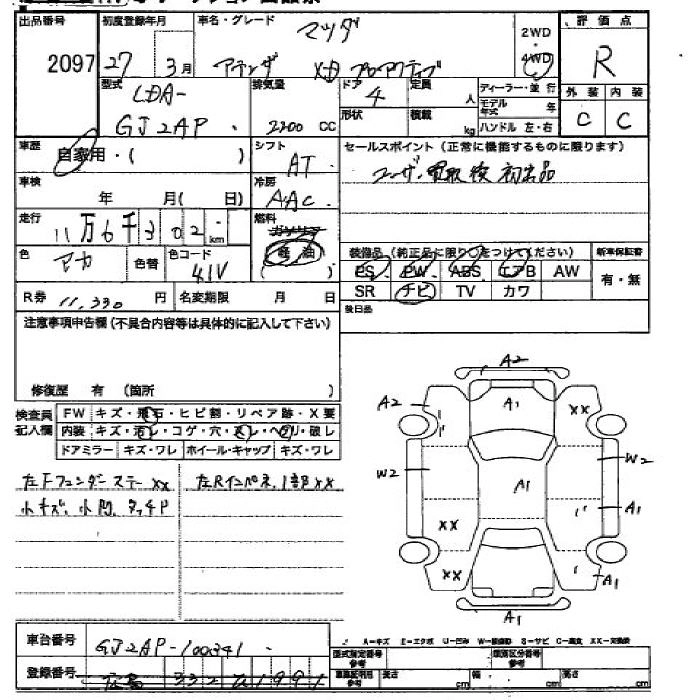 出品番号 初度登録年月 車名・グレード 2WD 評価点
2097 27 3月 マツダ 4WD R
アテンザ XD プロアクティブ
型式 LDA- 排気量 ドア 4 定員 人 ディーラー・並行 外装 内装
GJ2AP 2200 CC 形状 積載 kg モデル年式 年 C C
ハンドル 左・右
車歴 自家用・( ) シフト AT セールスポイント (正常に機能するものに限ります)
車検 年 月( 日) 冷房 AAC ユーザー買取後初出品
走行 11万6千302km 燃料 ガソリン
軽油
色 マカ 色替 色コード 41V ( )
装備品 (純正品に限り○をつけてください) 新車保証書
PS PW ABS エアB AW 有・無
SR ナビ TV カワ
R券 11,330 円 名変期限 月 日 後日品
注意事項申告欄 (不具合内容等は具体的に記入して下さい)
修復歴 有 (箇所 )
検査員 FW キズ・飛石・ヒビ割・リペア跡・X要
記入欄 内装 キズ・汚レ・コゲ・穴・スレ・ヘリ・破レ
ドアミラー キズ・ワレ ホイール・キャップ キズ・ワレ
左Fフェンダーステー XX 左Rインパネ 1部 XX
小キズ、小凹、タッチP
A2
A2 A1 XX
W2 W2
A1
XX A1
XX A1
A1
A-キズ E-エクボ U-凹ミ W-補修跡 S-サビ C-腐食 XX-交換跡
車台番号 GJ2AP-100341
型式指定番号 参考 類別区分番号 参考
登録番号 広島 332
長さ cm 幅 cm 高さ cm